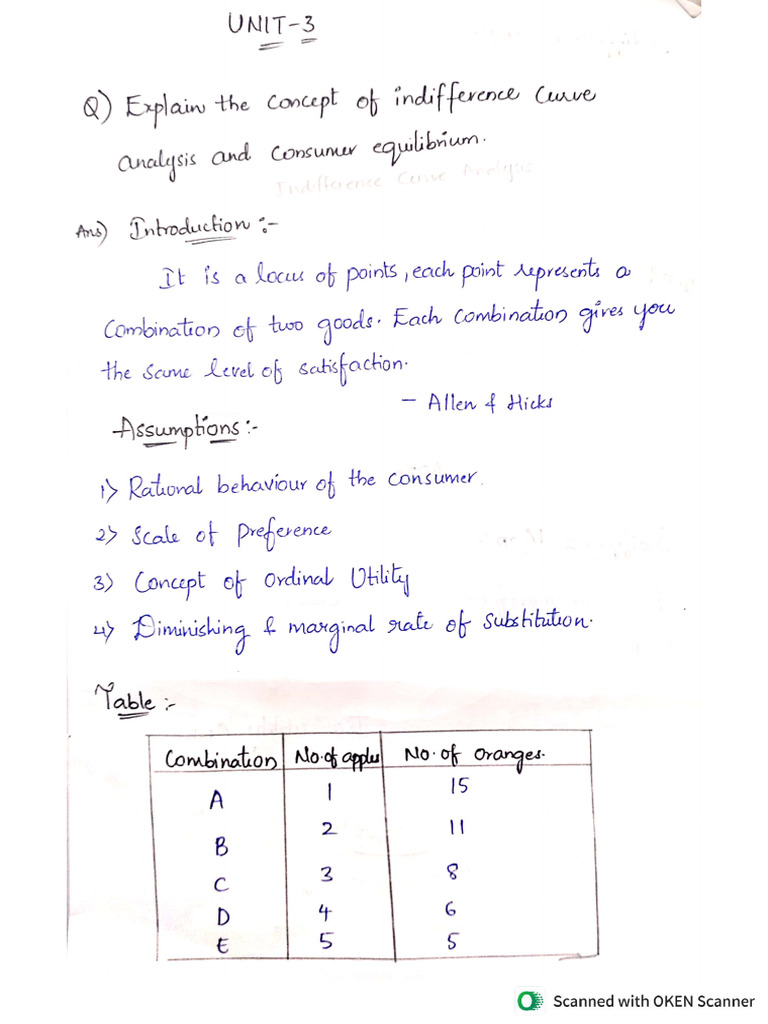 UNIT-3
Q) Explain the concept of indifference curve
analysis and consumer equilibrium.
Indifference Curve Analysis
Ans) Introduction :-
It is a locus of points, each point represents a
combination of two goods. Each combination gives you
the same level of satisfaction.
- Allen & Hicks
Assumptions :-
1) Rational behaviour of the consumer.
2) Scale of preference
3) Concept of ordinal Utility
4) Diminishing & marginal rate of substitution.
Table :-
Combination No. of apples No. of oranges.
A 1 15
B 2 11
C 3 8
D 4 6
E 5 5
Scanned with OKEN Scanner